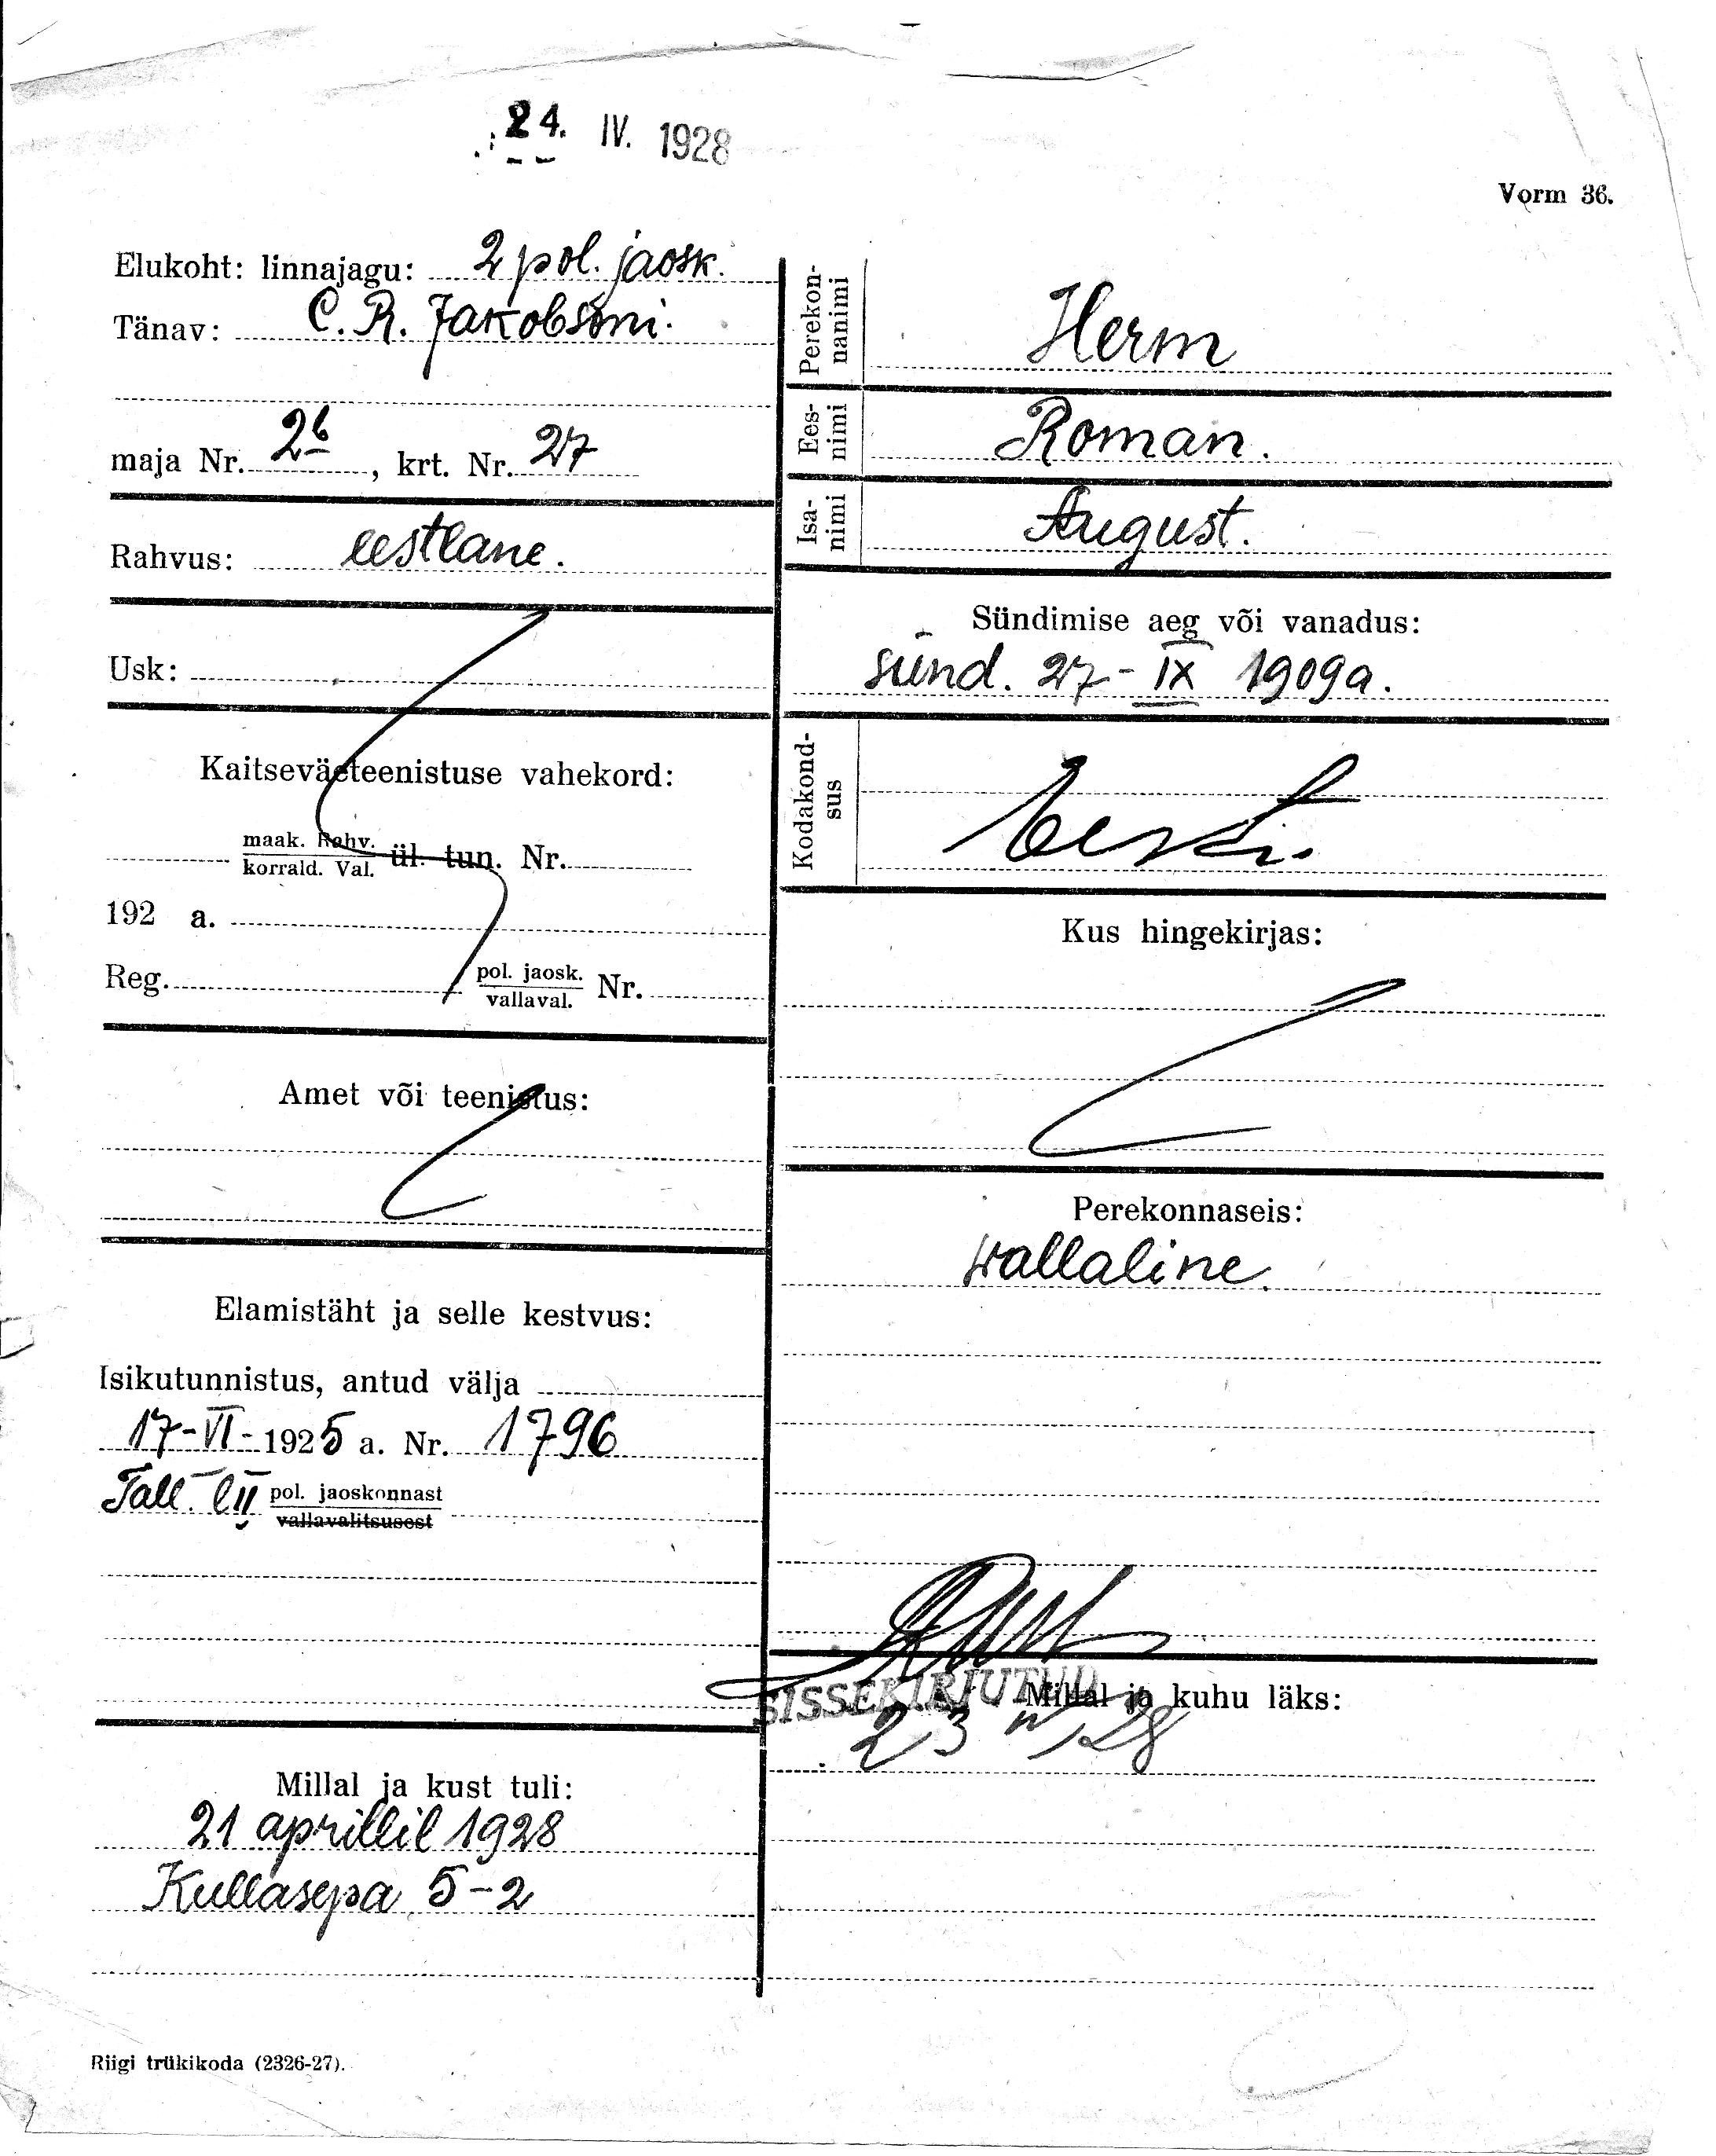 24. IV. 1928
Vorm 36.
Elukoht: linnajagu: 2 pol. jaosk.
Tänav: C. R. Jakobsoni.
maja Nr. 26, krt. Nr. 27
Rahvus: eestlane.
Usk:
Kaitseväeteenistuse vahekord:
maak. Rahv.
korrald. Val.
ül. tun. Nr.
192 a.
Reg.
pol. jaosk.
vallaval.
Nr.
Amet või teenistus:
Elamistäht ja selle kestvus:
Isikutunnistus, antud välja
17-VI-1925 a. Nr. 1796
Tall. II pol. jaoskonnast
vallavalitsusest
Millal ja kust tuli:
21 aprillil 1928
Kullasepa 5-2
Perekon-
nanimi
Herm
Ees-
nimi
Roman.
Isa-
nimi
August.
Sündimise aeg või vanadus:
sünd. 27-IX 1909a.
Kodakond-
sus
Eesti.
Kus hingekirjas:
Perekonnaseis:
wallaline.
SISSEKIRJUTUD
Millal ja kuhu läks:
23 IV 28
Riigi trükikoda (2326-27).